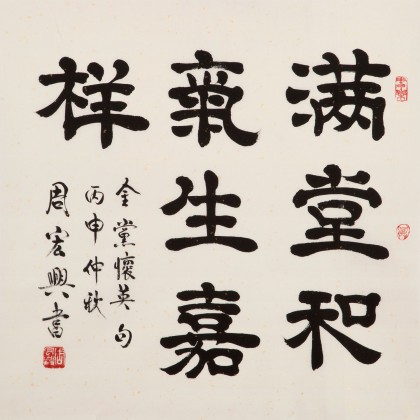 满堂和
氣生嘉
祥
金黨懷英句
丙申仲秋
周宏興書